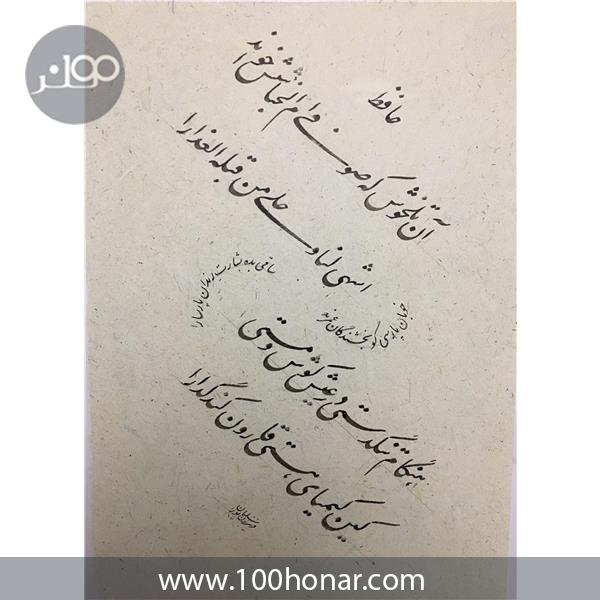 ۱۰۰هنر
حافظ
آن تلخوش که صوفی ام الخبائثش خواند
اشهی لنا و احلی من قبلة العذارا
خوبان پارسی گو بخشندگان عمرند
ساقی بده بشارت رندان پارسا را
هنگام تنگدستی در عیش کوش و مستی
کین کیمیای هستی قارون کند گدا را
www.100honar.com